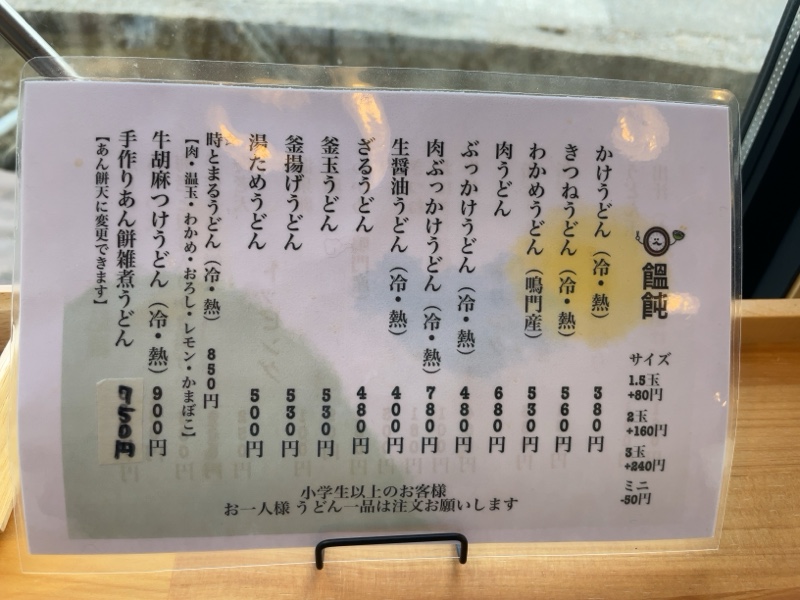 饂飩
サイズ
1.5玉
+80円
2玉
+160円
3玉
+240円
ミニ
-50円
かけうどん（冷・熱） 380円
きつねうどん（冷・熱） 560円
わかめうどん（鳴門産） 530円
肉うどん 680円
ぶっかけうどん（冷・熱） 480円
肉ぶっかけうどん（冷・熱） 780円
生醤油うどん（冷・熱） 400円
ざるうどん 480円
釜玉うどん 530円
釜揚げうどん 530円
湯ためうどん 500円
時とまるうどん（冷・熱） 850円
【肉・温玉・わかめ・おろし・レモン・かまぼこ】
牛胡麻つけうどん（冷・熱） 900円
手作りあん餅雑煮うどん 950円
【あん餅天に変更できます】
小学生以上のお客様
お一人様 うどん一品は注文お願いします